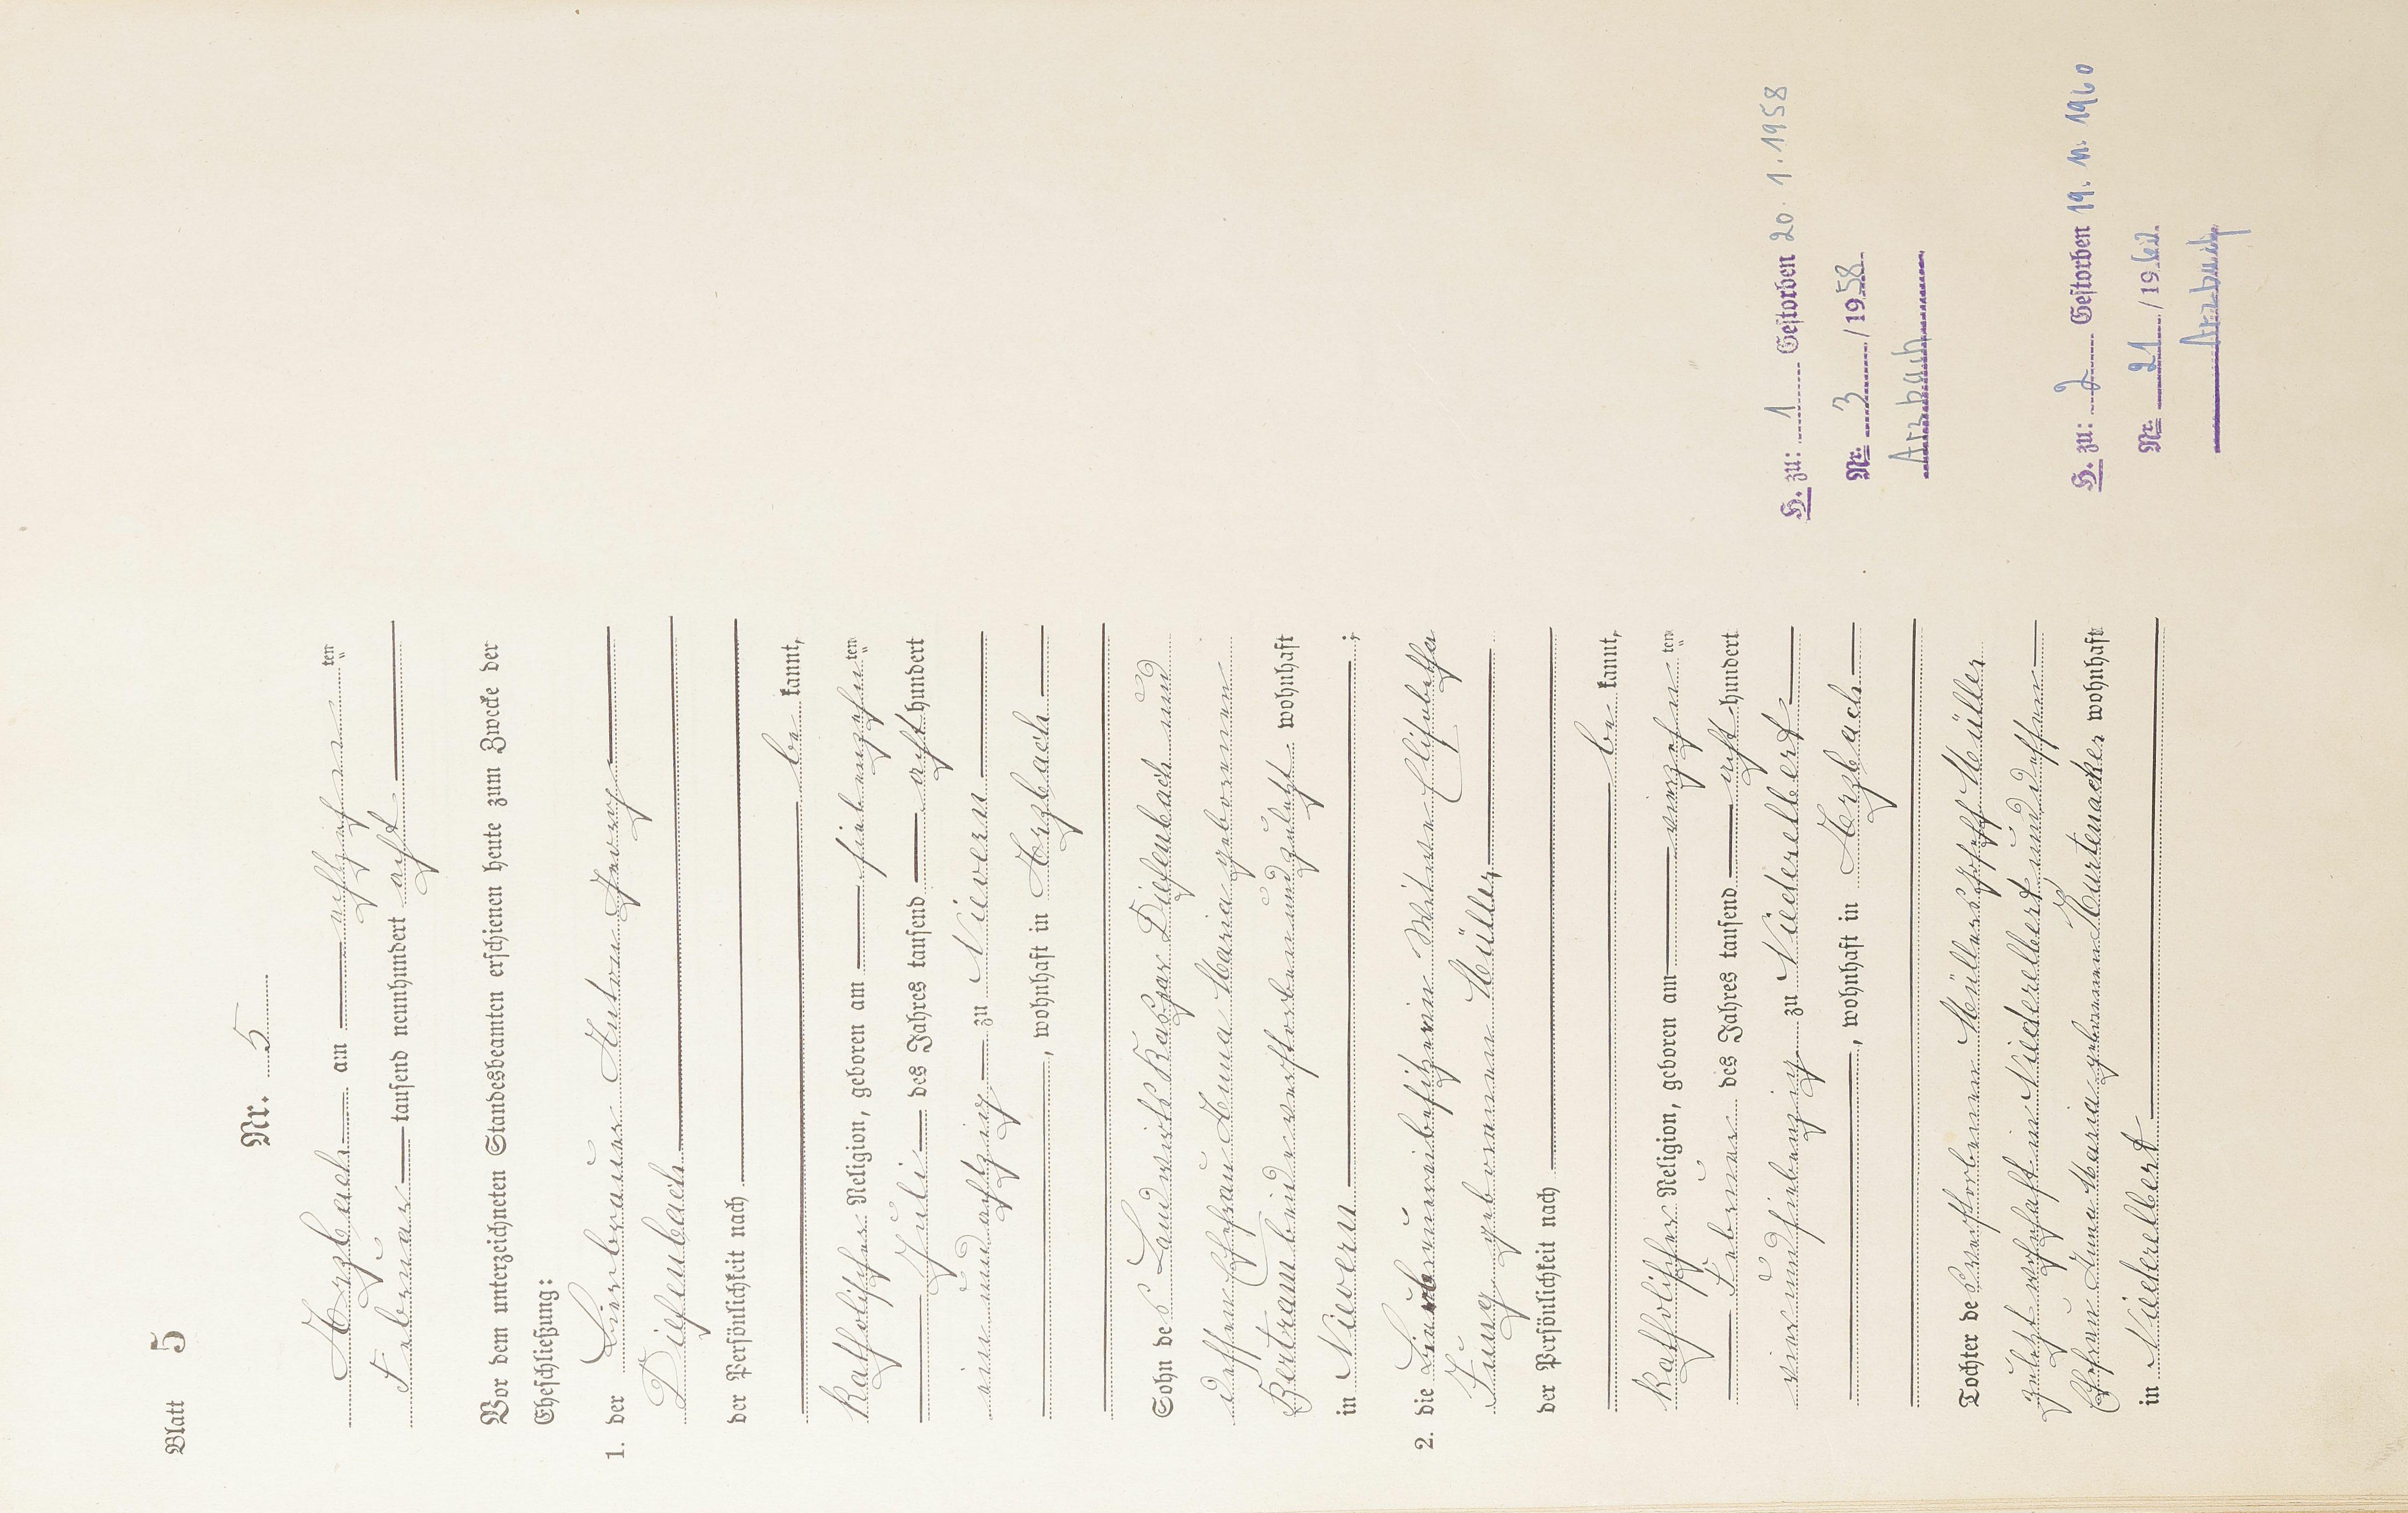 Blatt 5
Nr. 5
Arzbach am achtzehn ten
Februar tausend neunhundert acht
Vor dem unterzeichneten Standesbeamten erschienen heute zum Zwecke der
Eheschließung:
1. der Bierbrauer Anton Georg
Diefenbach
der Persönlichkeit nach
be kannt,
katholischer Religion, geboren am siebenzehn ten
Juli des Jahres tausend acht hundert
ein und achtzig zu Nievern
, wohnhaft in Arzbach
Sohn des Landwirts Kaspar Diefenbach und
dessen Ehefrau Anna Maria geborenen
Bertram beide verstorben und zuletzt wohnhaft
in Nievern ;
2. die Bierbrauereibesitzerin Witwe Elisabetha
Jung geborenen Müller
der Persönlichkeit nach
be kannt,
katholischer Religion, geboren am vierzehn ten
Februar des Jahres tausend acht hundert
vier und siebenzig zu Niederelbert
, wohnhaft in Arzbach
Tochter des verstorbenen Müllers Müller
zuletzt wohnhaft in Niederelbert und dessen
Ehefrau Anna Maria geborenen Kurtenacker wohnhaft
in Niederelbert
H. zu: 1 Gestorben 20. 1. 1958
Nr. 3 / 1958
Arzbach
H. zu: 2 Gestorben 19. 11. 1960
Nr. 21 / 1960
Arzbach